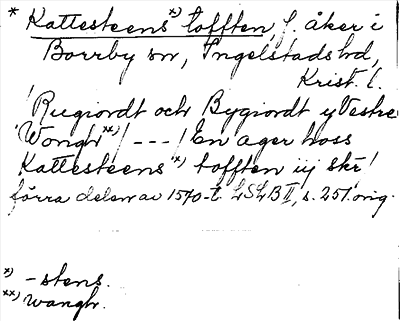 * Kattesteens x) tofften, f. åker i
Borrby sn, Ingelstads hd,
Krist. l.
"Rugiordt och Bygiordt y Vestre
Wongh xx) / - - - / En ager hoss
Kattesteens x) tofften iij skr"
förra delen av 1570-t. LSLB II, s. 251. orig.
x) -stens.
xx) wangh.